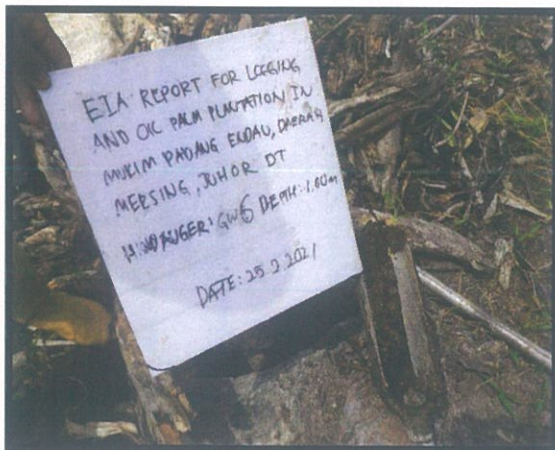 EIA REPORT FOR LOGGING
AND OIL PALM PLANTATION IN
MUKIM PADANG ENDAU, DAERAH
MERSING, JOHOR DT
HAND AUGER: GW6 DEPTH: 1.60m
DATE: 25.2.2021